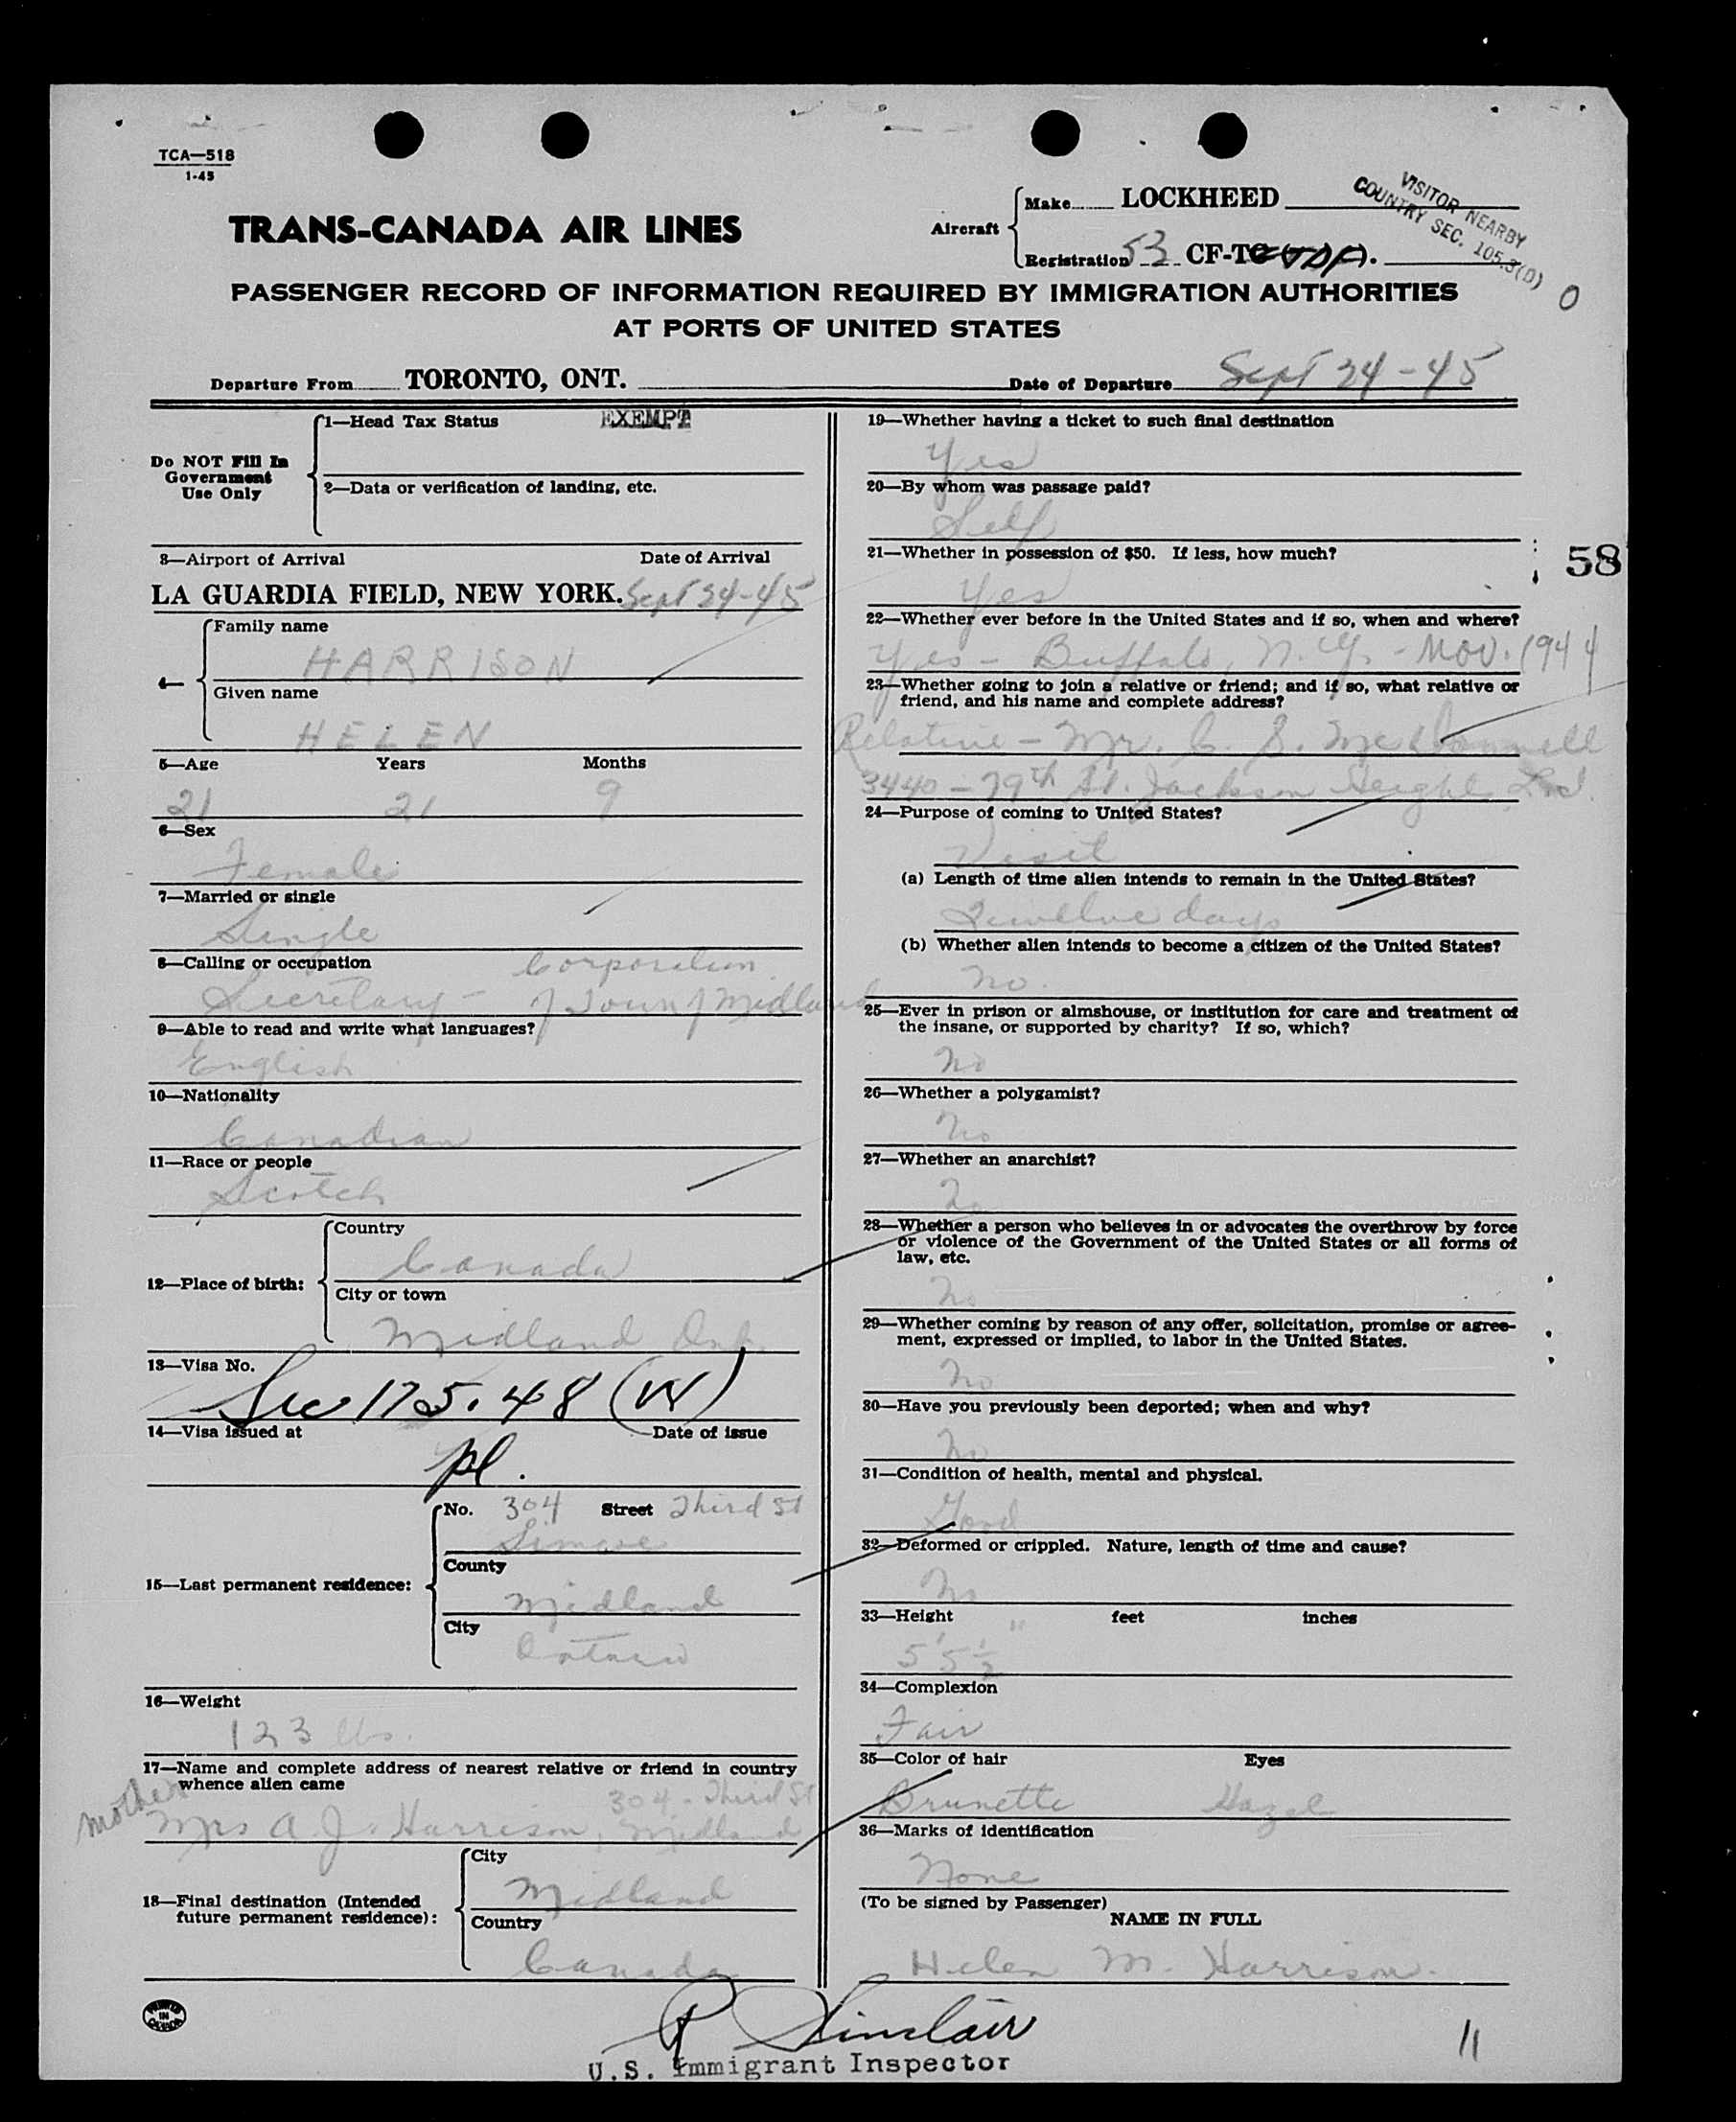 TCA—518
1-45
TRANS-CANADA AIR LINES
Aircraft
Make LOCKHEED
Registration 53 CF-TC
VISITOR NEARBY
COUNTRY SEC. 105.3(D)
0
PASSENGER RECORD OF INFORMATION REQUIRED BY IMMIGRATION AUTHORITIES
AT PORTS OF UNITED STATES
Departure From TORONTO, ONT. Date of Departure Sept 24-45
Do NOT Fill In
Government
Use Only
1—Head Tax Status EXEMPT
2—Data or verification of landing, etc.
3—Airport of Arrival Date of Arrival
LA GUARDIA FIELD, NEW YORK. Sept 24-45
4—
Family name
HARRISON
Given name
HELEN
5—Age Years Months
21 21 9
6—Sex
Female
7—Married or single
Single
8—Calling or occupation Corporation
Secretary - of Town of Midland
9—Able to read and write what languages?
English
10—Nationality
Canadian
11—Race or people
Scotch
12—Place of birth:
Country
Canada
City or town
Midland Ont.
13—Visa No.
Sec 175.48 (W)
14—Visa issued at Date of issue
pl.
15—Last permanent residence:
No. 304 Street Third St
Simcoe
County
Midland
City
Ontario
16—Weight
123 lbs.
17—Name and complete address of nearest relative or friend in country
whence alien came
mother 304 - Third St
Mrs A. J. Harrison, Midland
18—Final destination (Intended
future permanent residence):
City
Midland
Country
Canada
19—Whether having a ticket to such final destination
Yes
20—By whom was passage paid?
Self
21—Whether in possession of $50. If less, how much?
Yes
58
22—Whether ever before in the United States and if so, when and where?
Yes - Buffalo, N.Y. - Nov. 1944
23—Whether going to join a relative or friend; and if so, what relative or
friend, and his name and complete address?
Relative - Mr. C. S. McDonnell
3440 - 79th St. Jackson Heights
24—Purpose of coming to United States?
Visit
(a) Length of time alien intends to remain in the United States?
Twelve days
(b) Whether alien intends to become a citizen of the United States?
No.
25—Ever in prison or almshouse, or institution for care and treatment of
the insane, or supported by charity? If so, which?
No
26—Whether a polygamist?
No
27—Whether an anarchist?
No
28—Whether a person who believes in or advocates the overthrow by force
or violence of the Government of the United States or all forms of
law, etc.
No
29—Whether coming by reason of any offer, solicitation, promise or agree-
ment, expressed or implied, to labor in the United States.
No
30—Have you previously been deported; when and why?
No
31—Condition of health, mental and physical.
Good
32—Deformed or crippled. Nature, length of time and cause?
No
33—Height feet inches
5' 5½"
34—Complexion
Fair
35—Color of hair Eyes
Brunette Hazel
36—Marks of identification
None
(To be signed by Passenger)
NAME IN FULL
Helen M. Harrison.
PRINTED IN CANADA
R Sinclair
U.S. Immigrant Inspector
11